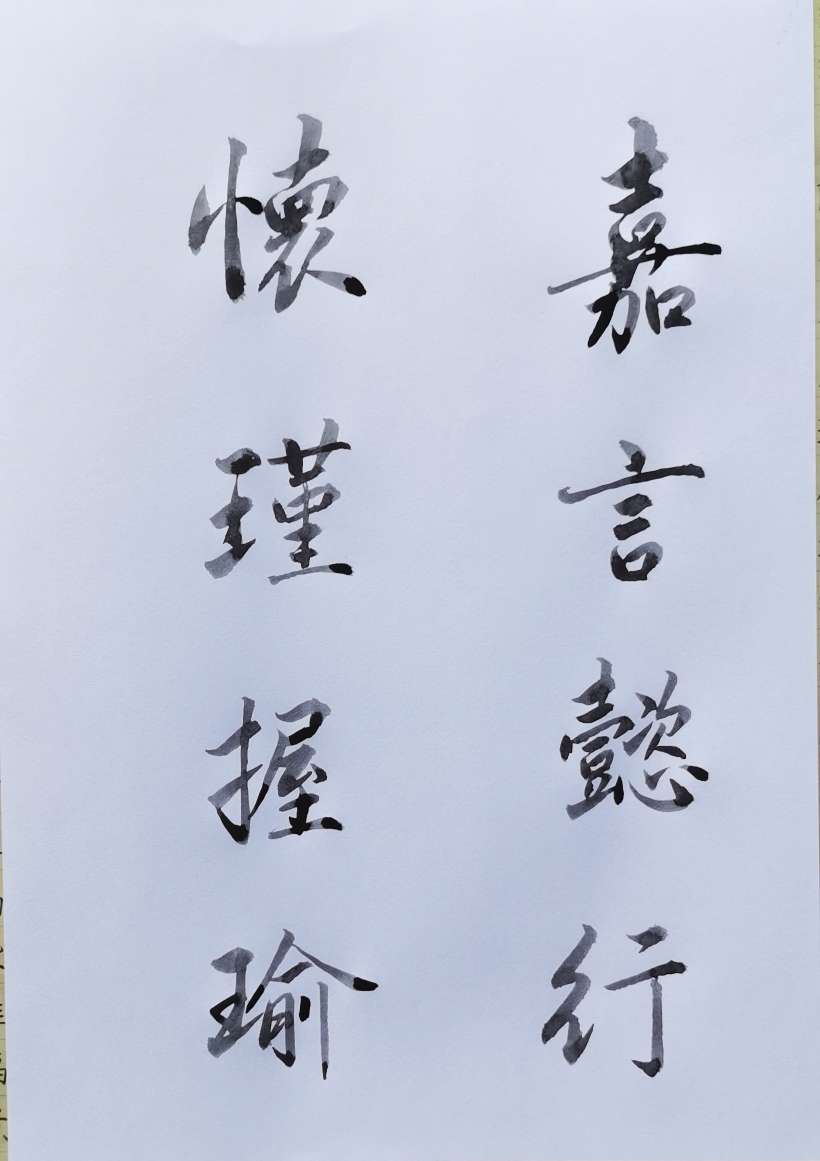 嘉言懿行
懷瑾握瑜